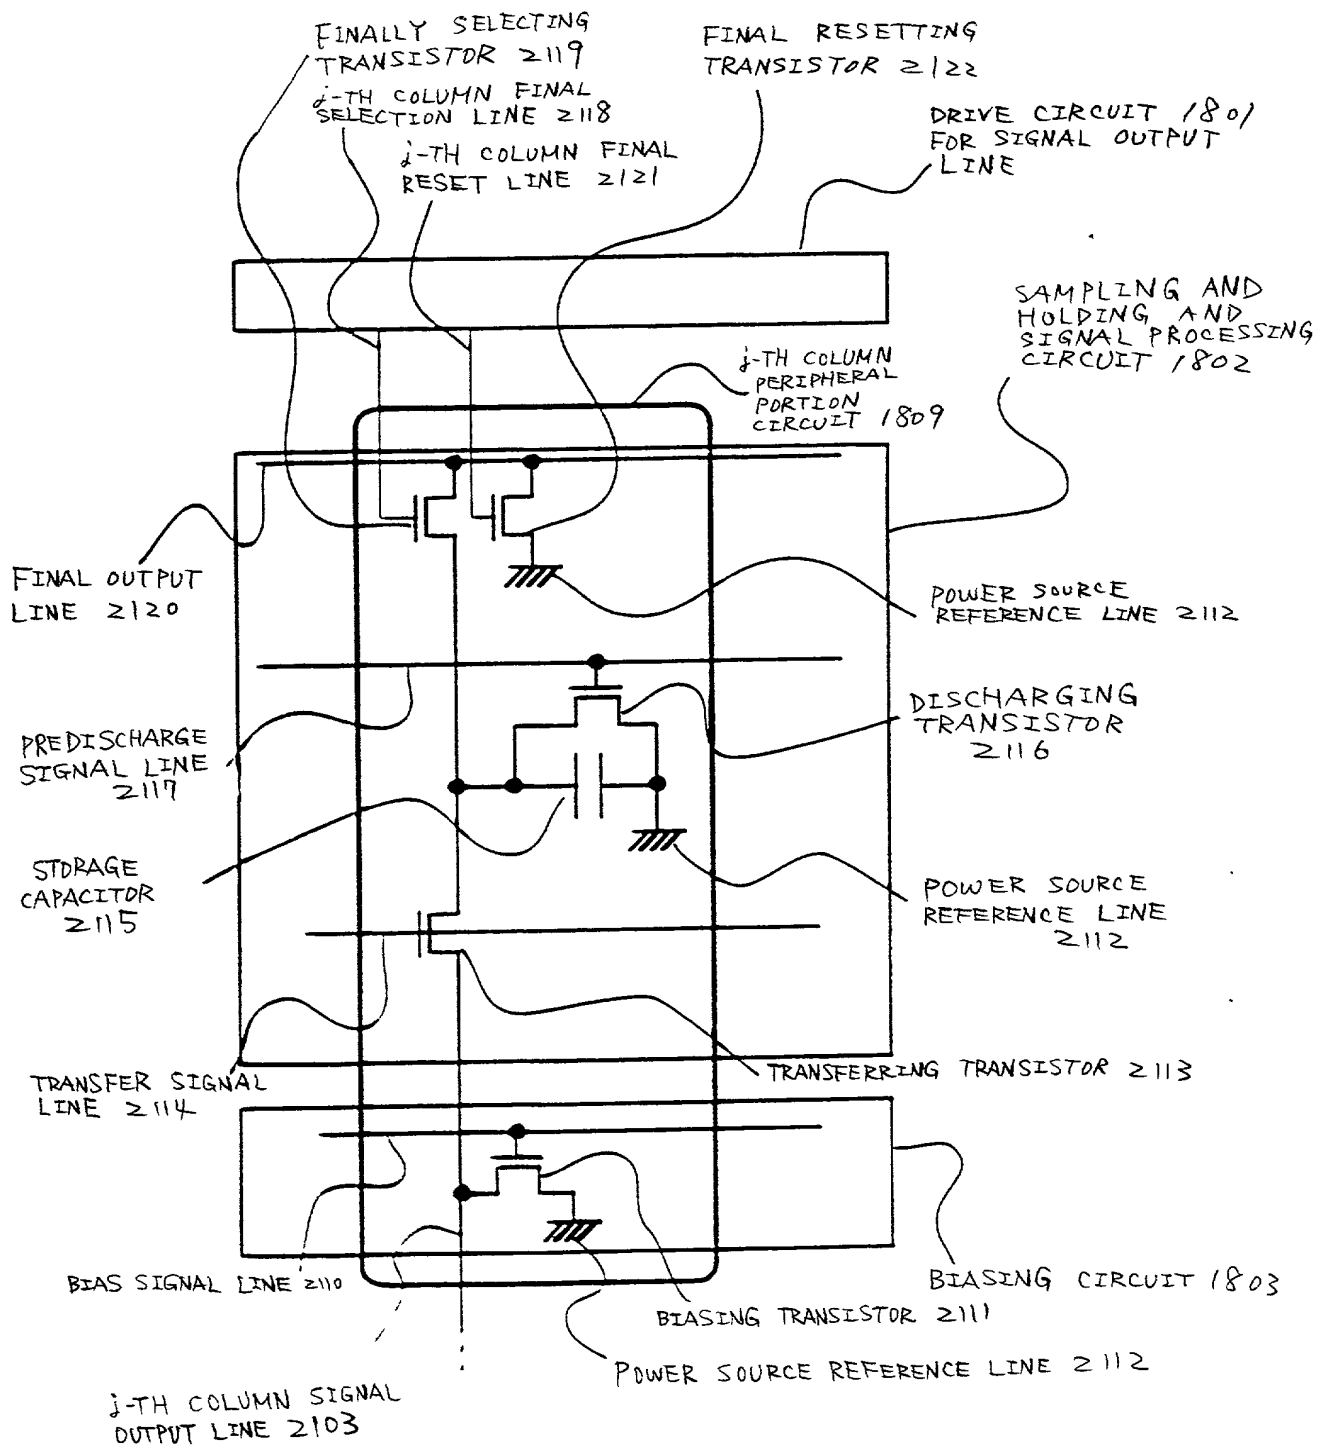 FINALLY SELECTING
TRANSISTOR 2119
j-TH COLUMN FINAL
SELECTION LINE 2118
j-TH COLUMN FINAL
RESET LINE 2121
FINAL RESETTING
TRANSISTOR 2122
DRIVE CIRCUIT 1801
FOR SIGNAL OUTPUT
LINE
SAMPLING AND
HOLDING AND
SIGNAL PROCESSING
CIRCUIT 1802
j-TH COLUMN
PERIPHERAL
PORTION
CIRCUIT 1809
FINAL OUTPUT
LINE 2120
POWER SOURCE
REFERENCE LINE 2112
PREDISCHARGE
SIGNAL LINE
2117
DISCHARGING
TRANSISTOR
2116
STORAGE
CAPACITOR
2115
POWER SOURCE
REFERENCE LINE
2112
TRANSFER SIGNAL
LINE 2114
TRANSFERRING TRANSISTOR 2113
BIAS SIGNAL LINE 2110
BIASING CIRCUIT 1803
BIASING TRANSISTOR 2111
POWER SOURCE REFERENCE LINE 2112
j-TH COLUMN SIGNAL
OUTPUT LINE 2103